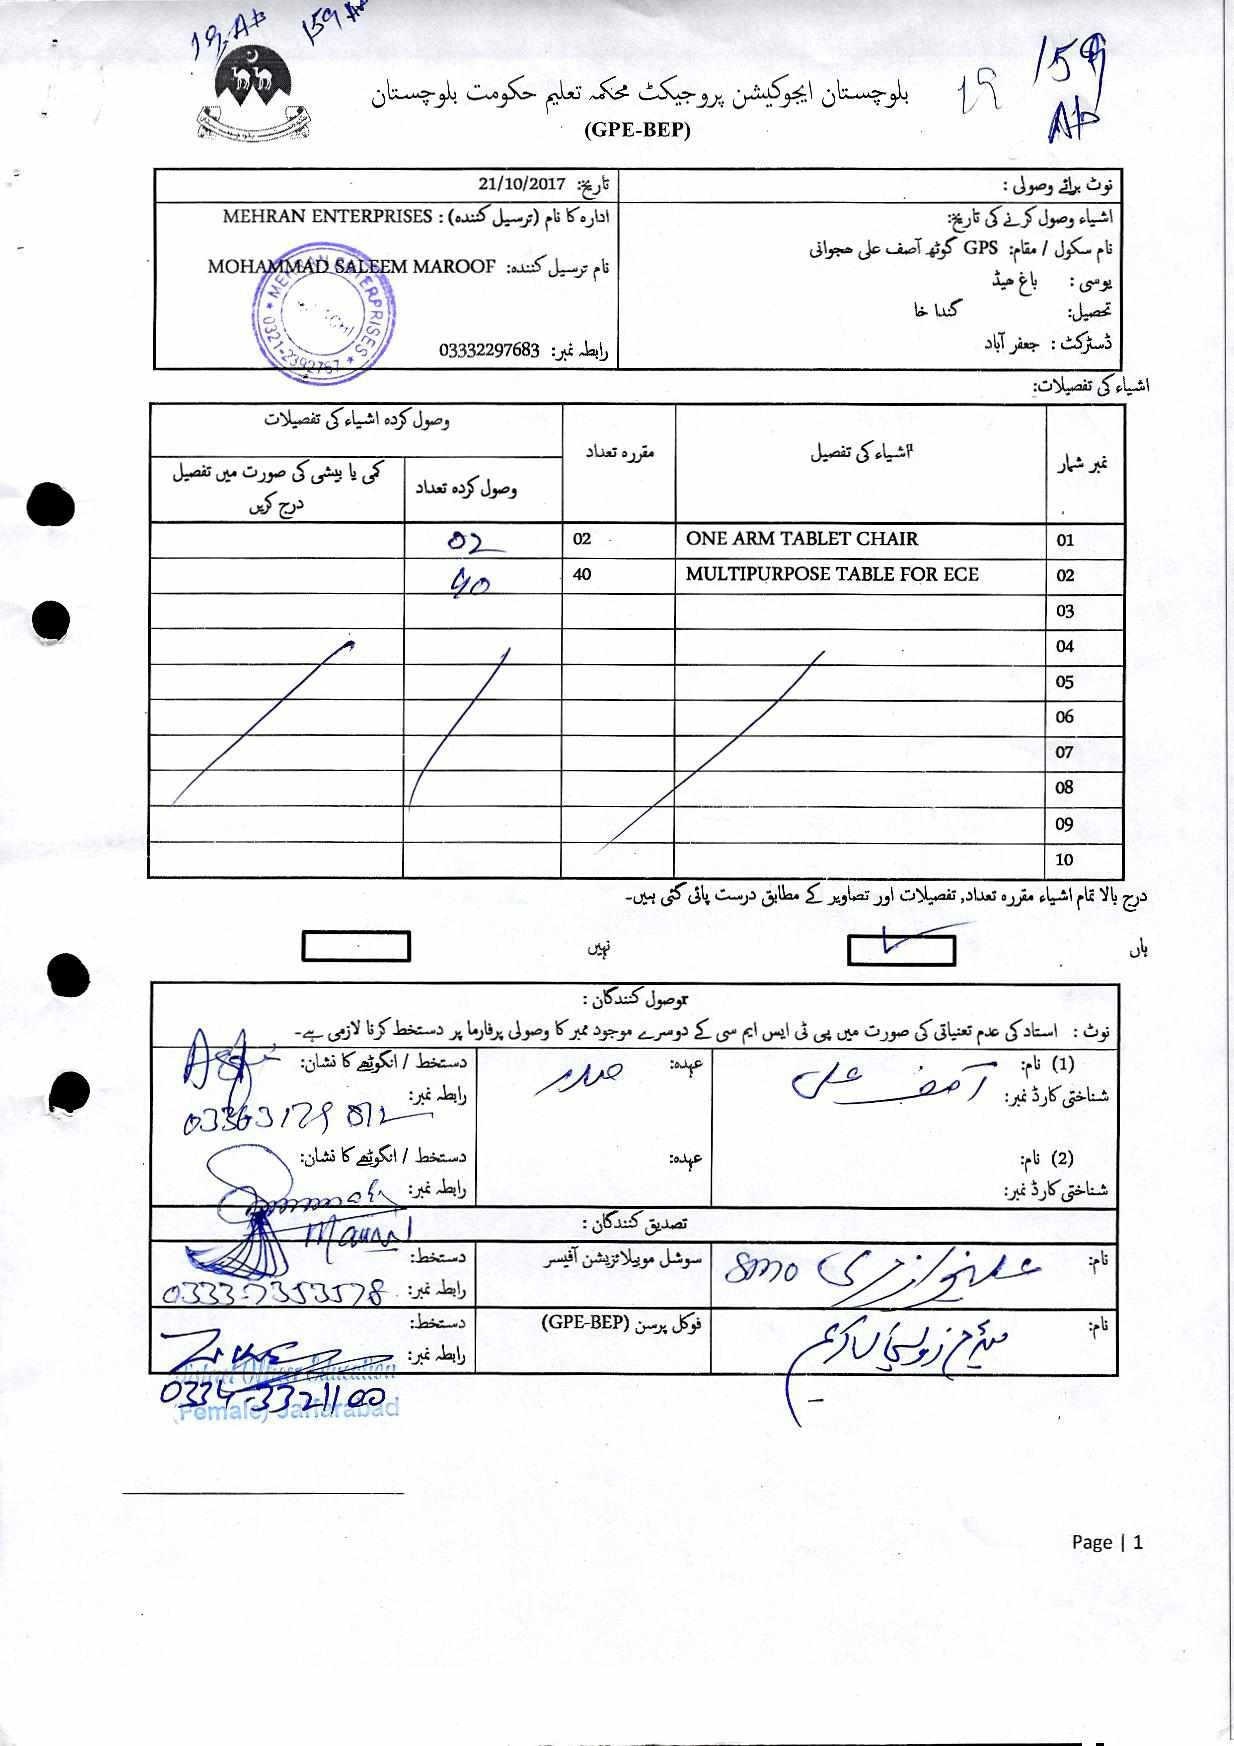 19 AB 159 AB
159
19
AB
بلوچستان ایجوکیشن پروجیکٹ محکمہ تعلیم حکومت بلوچستان
(GPE-BEP)
نوٹ برائے وصولی :
تاریخ: 21/10/2017
اشیاء وصول کرنے کی تاریخ:
ادارہ کا نام (ترسیل کنندہ) : MEHRAN ENTERPRISES
نام سکول / مقام: GPS گوٹھ آصف علی ھجوانی
نام ترسیل کنندہ: MOHAMMAD SALEEM MAROOF
یوسی : باغ ھیڈ
تحصیل: گندا خا
ڈسٹرکٹ : جعفر آباد
رابطہ نمبر: 03332297683
MEHRAN ENTERPRISES
0321-2392767
اشیاء کی تفصیلات:
نمبر شمار اشیاء کی تفصیل مقررہ تعداد وصول کردہ اشیاء کی تفصیلات
وصول کردہ تعداد کمی یا بیشی کی صورت میں تفصیل درج کریں
01 ONE ARM TABLET CHAIR 02 02
02 MULTIPURPOSE TABLE FOR ECE 40 40
03
04
05
06
07
08
09
10
درج بالا تمام اشیاء مقررہ تعداد, تفصیلات اور تصاویر کے مطابق درست پائی گئی ہیں۔
ہاں نہیں
وصول کنندگان :
نوٹ : استاد کی عدم تعنیاتی کی صورت میں پی ٹی ایس ایم سی کے دوسرے موجود ممبر کا وصولی پرفارما پر دستخط کرنا لازمی ہے۔
(1) نام: آصف علی عہدہ: صدر دستخط / انگوٹھے کا نشان:
شناختی کارڈ نمبر: رابطہ نمبر: 03363179812
(2) نام: عہدہ: دستخط / انگوٹھے کا نشان:
شناختی کارڈ نمبر: رابطہ نمبر:
تصدیق کنندگان :
نام: SMO سوشل موبیلائزیشن آفیسر دستخط:
رابطہ نمبر: 0333-7353578
نام: فوکل پرسن (GPE-BEP) دستخط:
رابطہ نمبر: 0334-3321100
Officer Education
(Female) Jaffarabad
Page | 1